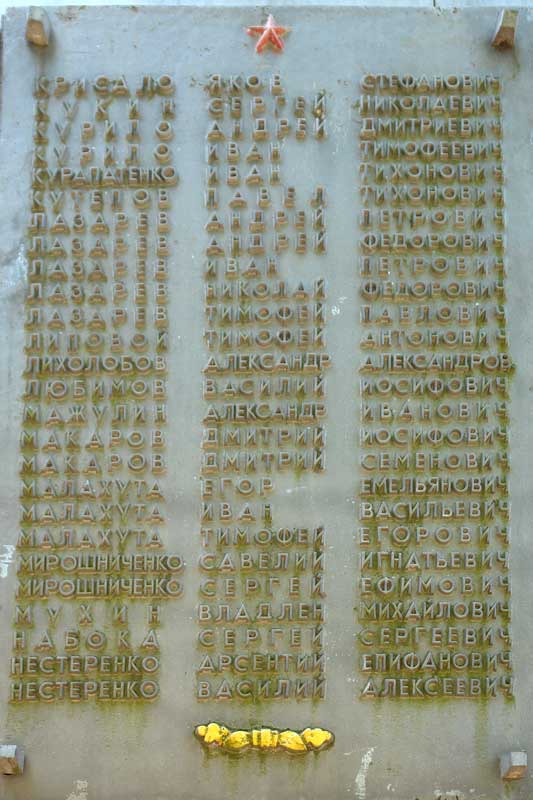 КРИСАЛО ЯКОВ СТЕФАНОВИЧ
КУКИН СЕРГЕЙ НИКОЛАЕВИЧ
КУРИЛО АНДРЕЙ ДМИТРИЕВИЧ
КУРИЛО ИВАН ТИМОФЕЕВИЧ
КУРАПАТЕНКО ИВАН ТИХОНОВИЧ
КУТЕПОВ ПАВЕЛ ТИХОНОВИЧ
ЛАЗАРЕВ АНДРЕЙ ПЕТРОВИЧ
ЛАЗАРЕВ АНДРЕЙ ФЕДОРОВИЧ
ЛАЗАРЕВ ИВАН ПЕТРОВИЧ
ЛАЗАРЕВ НИКОЛАЙ ФЕДОРОВИЧ
ЛАЗАРЕВ ТИМОФЕЙ ПАВЛОВИЧ
ЛИПОВОЙ ТИМОФЕЙ АНТОНОВИЧ
ЛИХОЛОБОВ АЛЕКСАНДР АЛЕКСАНДРОВ
ЛЮБИМОВ ВАСИЛИЙ ИОСИФОВИЧ
МАЖУЛИН АЛЕКСАНДР ИВАНОВИЧ
МАКАРОВ ДМИТРИЙ ИОСИФОВИЧ
МАКАРОВ ДМИТРИЙ СЕМЕНОВИЧ
МАЛАХУТА ЕГОР ЕМЕЛЬЯНОВИЧ
МАЛАХУТА ИВАН ВАСИЛЬЕВИЧ
МАЛАХУТА ТИМОФЕЙ ЕГОРОВИЧ
МИРОШНИЧЕНКО САВЕЛИЙ ИГНАТЬЕВИЧ
МИРОШНИЧЕНКО СЕРГЕЙ ЕФИМОВИЧ
МУХИН ВЛАДЛЕН МИХАЙЛОВИЧ
НАБОКА СЕРГЕЙ СЕРГЕЕВИЧ
НЕСТЕРЕНКО АРСЕНТИЙ ЕПИФАНОВИЧ
НЕСТЕРЕНКО ВАСИЛИЙ АЛЕКСЕЕВИЧ